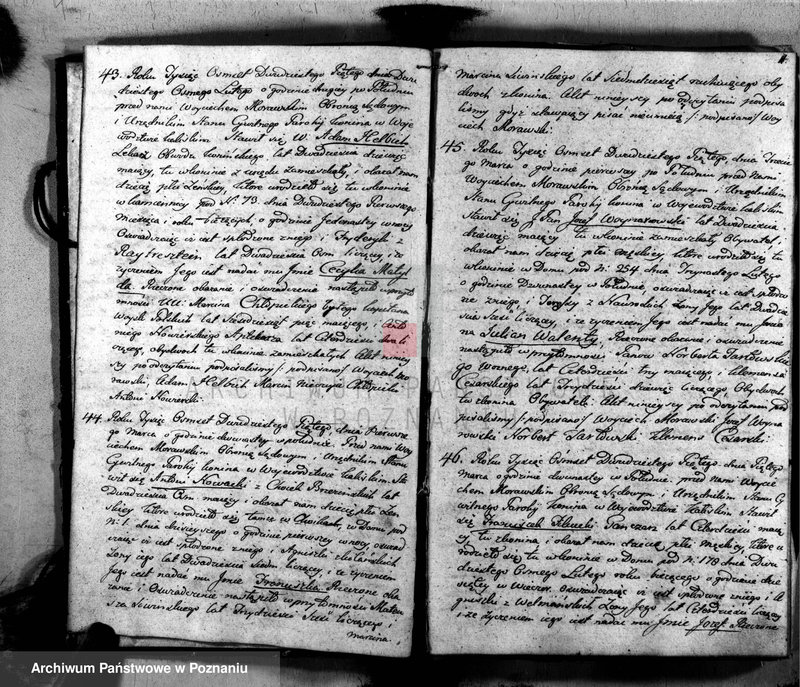 43. Roku Tysiąc Osmset Dwudziestego Piątego dnia Dwu
dziestego Osmego Lutego o godzinie drugiey po Południu
przed nami Woyciechem Morawskim
i Urzędnikim Stanu Cywilnego Parafij konina w Woje
wodztwie kaliskim Stawił się W. Adam Helbich
Lekarz Obwodu konińskiego lat Dwadzieścia dziewięć
maiący, tu w koninie zamieszkały, i okazał nam
dziecię płci Żeńskiey, które urodziło się tu w koninie
w kamienicy pod N. 73. dnia Dwudziestego Pierwszego
miesiąca i roku bieżących, o godzinie Jedenastey w nocy
Oswiadczaiąc iż iest spłodzone z niego i Fryderyki z
lat Dwadzieścia Osm liczącey, i że
życzeniem Jego iest nadać mu Jmie Cecylia Matyl
da. Poczem okazanie i oswiadczenie nastąpiło w przyto
mności UU. Marcina Chłopickiego byłego kapitana
Woysk Polskich lat Szesdziesiąt pięć maiącego, i Anto
niego Nowierskiego Aptekarza lat Czterdzieści dwa li
czącego, obydwoch tu w koninie zamieszkałych Akt niniey
szy po odczytaniu podpisaliśmy /: podpisano:/ Woyciech Mo
rawski, Adam Helbich Marcin Chłopicki
Antoni Nowierski.
44. Roku Tysiąc Osmset Dwudziestego Piątego, dnia Pierwsze
go marca o godzinie dwunastey w południe. Przed nami Woy
ciechem Morawskim Urzędnikim Stanu
Cywilnego Parafij konina w Wojewodztwie kaliskim Sta
wił się Antoni Nowacki z lat
Dwadzieścia Osm maiący i okazał nam dziecię płci Żeń
skiey które urodziło się tamże w w Domu pod
N: 1. dnia dzisieyszego o godzinie pierwszey w nocy, oswiad
czaiąc iż iest spłodzone z niego, i Agnieszki
Żony jego lat Dwadzieścia Siedm liczącey, i że życzeniem
Jego iest nadać mu Jmie Franciszka Poczem oka
zanie i Oswiadczenie nastąpiło w przytomności Mateu
sza lat Trzydzieści Sześć liczącego i
marcina
marcina lat Siedmdziesiąt rachuiącego oby
dwoch z konina. Akt ninieyszy po odczytaniu podpisa
liśmy gdyż stawaiący pisać nieumieią /: podpisano:/ Woy
ciech Morawski:
45. Roku Tysiąc Osmset Dwudziestego Piątego, dnia Trzecie
go Marca o godzinie pierwszey po Południu przed Nami
Woyciechem Morawskim i Urzędnikim
Stanu Cywilnego Parafij konina w Wojewodztwie kaliskim
Stawił się J Pan Jozef Woynarowski lat Dwadzieścia
dziewięć maiący tu w koninie zamieszkały Obywatel,
okazał nam dziecię płci męzkiey, które urodziło się tu
w koninie w Domu pod N: 254 dnia Trzynastego Lutego
o godzinie Dwunastey w Południe, oswiadczaiąc iż iest spłodzo
ne z niego, i z Żony Jego lat Dwadzie
ścia Sześć liczącey, i że życzeniem Jego iest nadać mu Jmie
na Julian Walenty, Poczem okazanie, i oswiadczenie
nastąpiło w przytomności Panow Norberta
go Woznego, lat Czterdzieści trzy maiącego, i Klemensa
Czarskiego lat Trzydzieści dziewięć liczącego, Obydwoch
tu z konina Obywateli. Akt ninieyszy po odczytaniu pod
pisaliśmy /: podpisano:/ Woyciech Morawski Jozef Woyna
rowski Norbert Klemens Czarski:
46. Roku Tysiąc Osmset Dwudziestego Piątego dnia Piątego
Marca o godzinie dwunastey w Południe. przed Nami Woycie
chem Morawskim i Urzędnikim Stanu Cy
wilnego Parafij konina w Wojewodztwie kaliskim Stawił
się Franciszek lat Czterdzieści maią
cy, tu z konina, i okazał nam dziecię, płci męzkiey, które u
rodziło się tu w koninie w Domu pod N: 179 dnia Dwu
dziestego Osmego Lutego roku bieżącego o godzinie dzie
siątey w Wieczor. Oswiadczaiąc iż iest spłodzone z niego i A
gnieszki z Żony Jego lat Czterdzieści liczącey
i że życzeniem iego iest nadać mu Jmie Jozef Poczem
ARCHIWUM PAŃSTWOWE
W POZNANIU
Archiwum Państwowe w Poznaniu